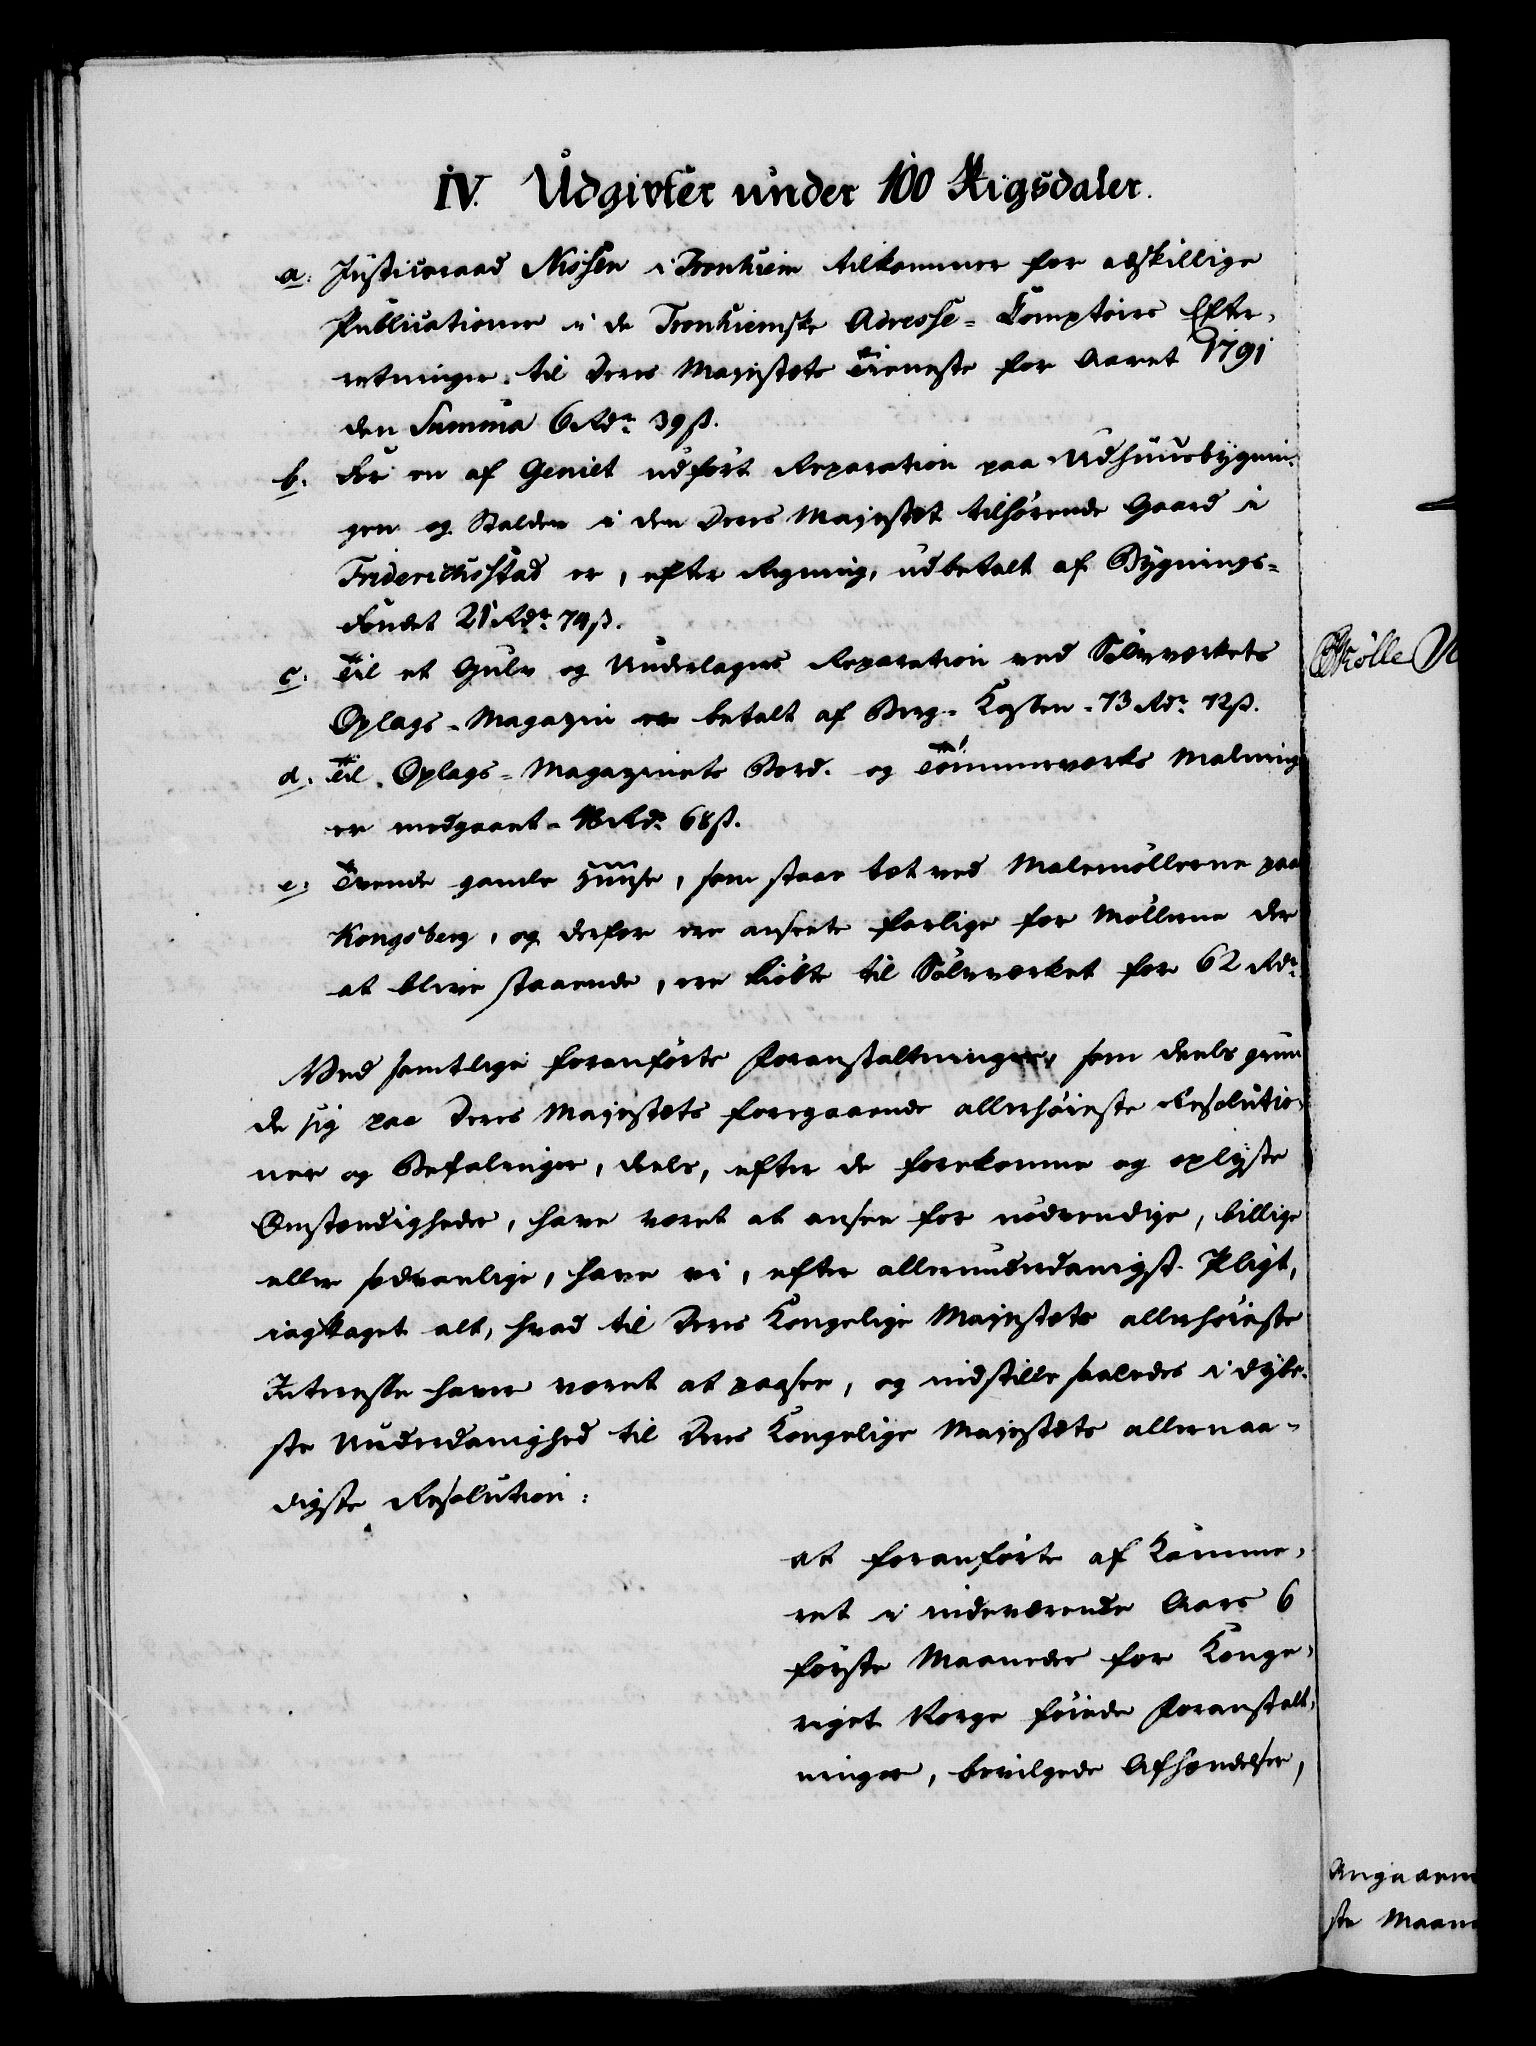 IV. Udgivter under 100 Rigsdaler.
a. Justiceraad Nissen i Tronhiem tilkommer for adskillige
Publicationer i de Tronhiemske Adresse-Comptoirs Efter-
retninger til Deres Majestæts Tieneste for Aaret 1791
den Summa 6 Rdr. 39 ß.
b. For en af Geniet udført Reparation paa Udhuusbygnin-
gen og Stalden i den Deres Majestæt tilhørende Gaard i
Friderichsstad er, efter Regning, udbetalt af Bygnings-
Fondet 21 Rdr. 74 ß.
c. Til et Gulv og Underlagers Reparation ved Sølvværkets
Oplags-Magazin er betalt af Berg-Kassen 73 Rdr. 72 ß.
d. Til Oplags-Magazinets Bord- og Tømmerværks Malning
er medgaaet Rdr. 68 ß.
e. Tvende gamle Huuse, som staae tæt ved Malemøllerne paa
Kongsberg, og derfor ere ansete farlige for Møllerne der
at blive staaende, ere kiøbte til Sølvværket for 62 Rdr.
Ved samtlige foranførte Foranstaltninger, som deels grun
de sig paa Deres Majestæts foregaaende allerhøieste Resolutio-
ner og Befalinger, deels, efter de forekomne og oplyste
Omstændigheder, have været at ansee for nødvendige, billige
eller sædvanlige, have vi, efter allerunderdanigst Pligt,
iagttaget alt, hvad til Deres Kongelige Majestæts allerhøieste
Interesse haver været at paasee, og indstille saaledes i dybe-
ste Underdanighed til Deres Kongelige Majestæts allernaa-
digste Resolution:
at foranførte af Kamme-
ret i indeværende Aars 6
første Maaneder for Konge-
riget Norge føiede Foranstalt-
ninger, bevilgede Afhændelser,
Angaaen
ste Maan